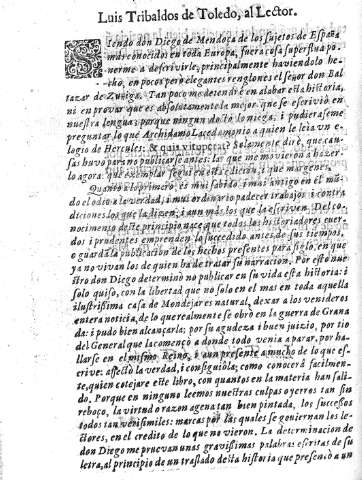 Luis Tribaldos de Toledo, al Lector.
SIendo don Diego de Mendoça de los sujetos de España
mas conocidos en toda Europa, fuera cosa superflua po-
nerme a descrivirle, principalmente haviendolo he-
cho, en pocos pero elegantes renglones el señor don Bal
tazar de Zuñiga. Tan poco me detendrè en alabar esta historia,
ni en provar que es absolutamente la mejor que se escrivió en
nuestra lengua; porque ningun docto lo niega, i pudiera se me
preguntar lo que Archidamo Lacedemonio a quien le leìa un e-
logio de Hercules: & quis vituperat? Solamente dirè, que cau-
sas huvo para no publicarse antes: las que me movieron a hazer
lo agora: que exemplar segui en esta edicion, i que margenes.
Quanto a lo primero, es mui sabido i mui antiguo en el mũ
do el odio a la verdad, i mui ordinario padecer trabajos i contra
diciones los que la dizen, i aun mas los que la escriven. Del co-
nocimento deste principio nace que todos los historiadores cuer-
dos i prudentes emprenden lo sucedido antes de sus tiempos,
o guardã la publicacion de los hechos presentes para siglo, en que
ya no vivan los de quien ha de tratar su narracion. Por esto nue
stro don Diego determinò no publicar en su vida esta historia: i
solo quiso, con la libertad que no solo en el mas en toda aquella
ilustrissima casa de Mondejar es natural, dexar a los venideros
entera noticia, de lo que realmente se obrò en la guerra de Grana
da: i pudo bien alcançarla; por su agudeza i buen juizio, por tio
del General que la començò a donde todo venia a parar, por ha-
llarse en el mismo Reino, i aun presente a mucho de lo que es-
crive: affectò la verdad, i consiguiòla; como conocerà facilmen-
te, quien cotejare este libro, con quantos en la materia han sali-
do. Porque en ninguno leemos nuestras culpas o yerros tan sin
reboço, la virtud o razon agena tan bien pintada, los sucessos
todos tan verisimiles: marcas por las quales se goviernan los le-
ctores, en el credito de lo que no vieron. La determinacion de
don Diego me pruevan unas gravissimas palabras escritas de su
letra, al principio de un traslado desta historia que presentò a un